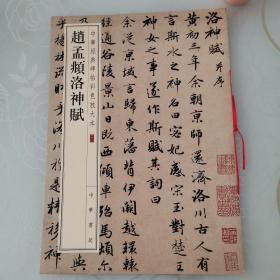 中華經典碑帖彩色放大本
趙孟頫洛神賦
中華書局
洛神賦 并序
黃初三年余朝京師還濟洛川古人有
言斯水之神名曰宓妃感宋玉對楚王
神女之事遂作斯賦其詞曰
余從京域言歸東藩背伊闕越轘轅
景山日既西傾車殆馬煩
精移神